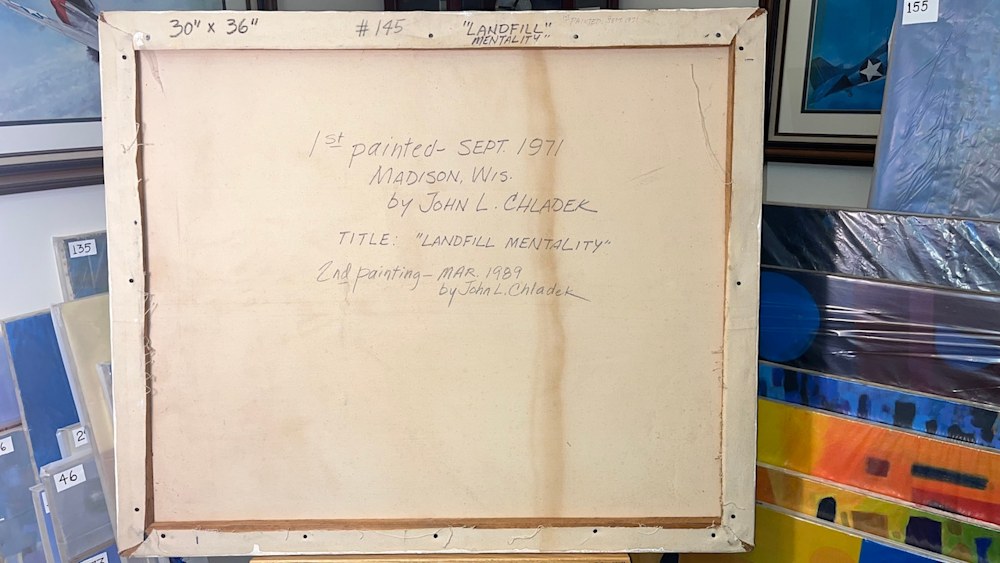 30" x 36" #145 "LANDFILL"
MENTALITY"
155
1st painted- SEPT. 1971
MADISON, WIS.
by JOHN L. CHLADEK
TITLE: "LANDFILL MENTALITY"
2nd painting- MAR. 1989
by John L. Chladek
135
2
6
46